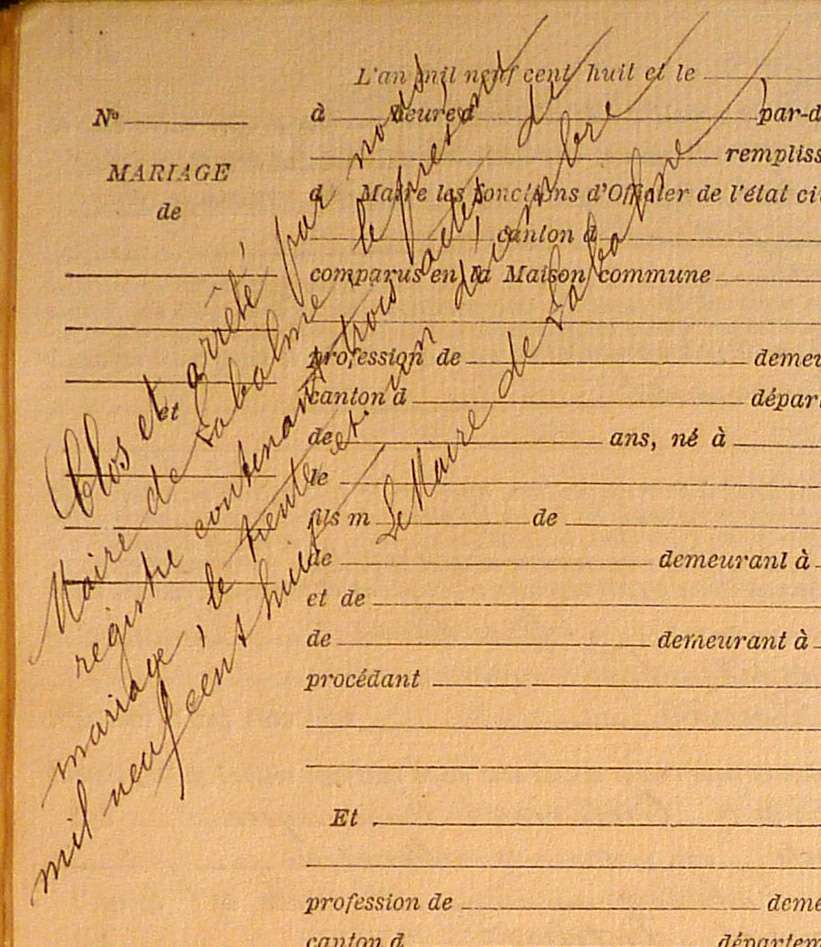 L'an mil neuf cent huit et le
à heure d par-d
rempliss
d Maire les fonctions d'Officier de l'état ci
, canton d
comparus en la Maison commune
profession de demeu
canton d dépar
de ans, né à
le
fils m de
de demeurant à
et de
de demeurant à
procédant
Et
profession de deme
canton d départem
No
MARIAGE
de
et
Clos et arrêté par nous
Maire de Labalme, le présent
registre contenant trois actes de
mariage, le trente et un décembre
mil neuf cent huit
Le Maire de Labalme